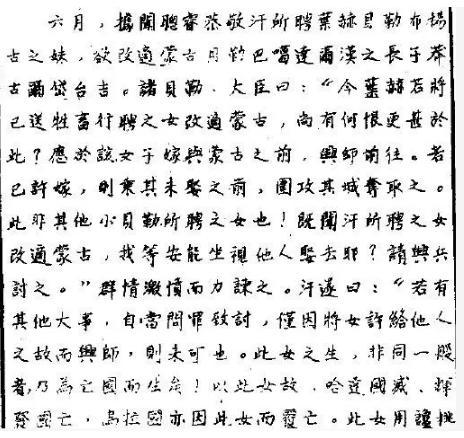 六月，據聞聰睿恭敬汗所聘葉赫貝勒布揚
古之妹，欲改適蒙古貝勒巴噶達爾漢之長子莽
古爾岱台吉。諸貝勒、大臣曰：“今葉赫若將
已送牲畜行聘之女改適蒙古，尚有何恨更甚於
此？應於該女子嫁與蒙古之前，興師前往。若
已許嫁，則乘其未娶之前，圍攻其城奪取之。
此非其他小貝勒所聘之女也！既聞汗所聘之女
改適蒙古，我等安能坐視他人娶去耶？請興兵
討之。”群情激憤而力諫之。汗遂曰：“若有
其他大事，自當問罪致討，僅因將女許給他人
之故而興師，則未可也。此女之生，非同一般
者，乃為亡國而生矣！以此女故，哈達國滅，輝
發國亡，烏拉國亦因此女而覆亡。此女用讒挑